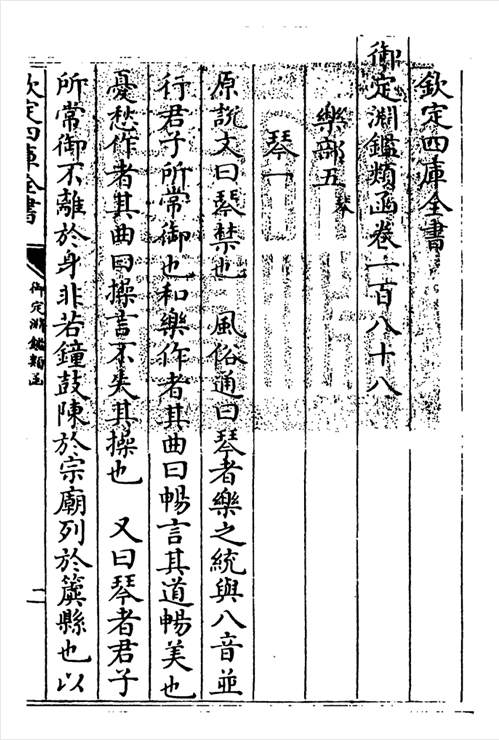 欽定四庫全書
御定淵鑑類函卷一百八十八
樂部五 琴
琴一
原說文曰琴禁也 風俗通曰琴者樂之統與八音並
行君子所常御也和樂作者其曲曰暢言其道暢美也
憂愁作者其曲曰操言不失其操也 又曰琴者君子
所常御不離於身非若鐘鼓陳於宗廟列於簴縣也以
欽定四庫全書
御定淵鑑類函